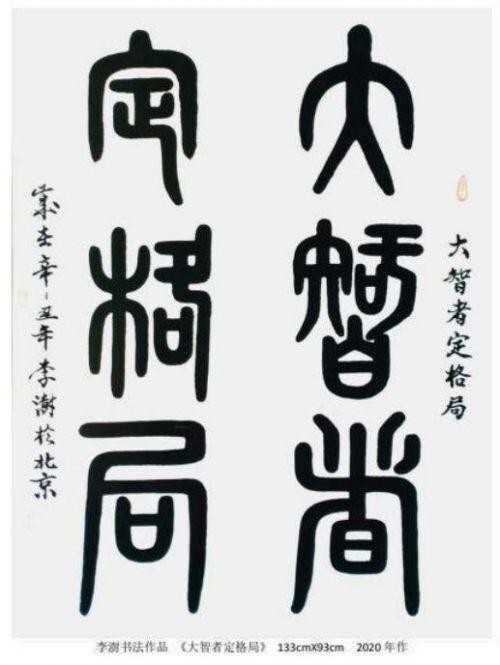 大智者定格局
大智者
定格局
歲在辛丑年李澍於北京
李澍书法作品 《大智者定格局》 133cmX93cm 2020 年作